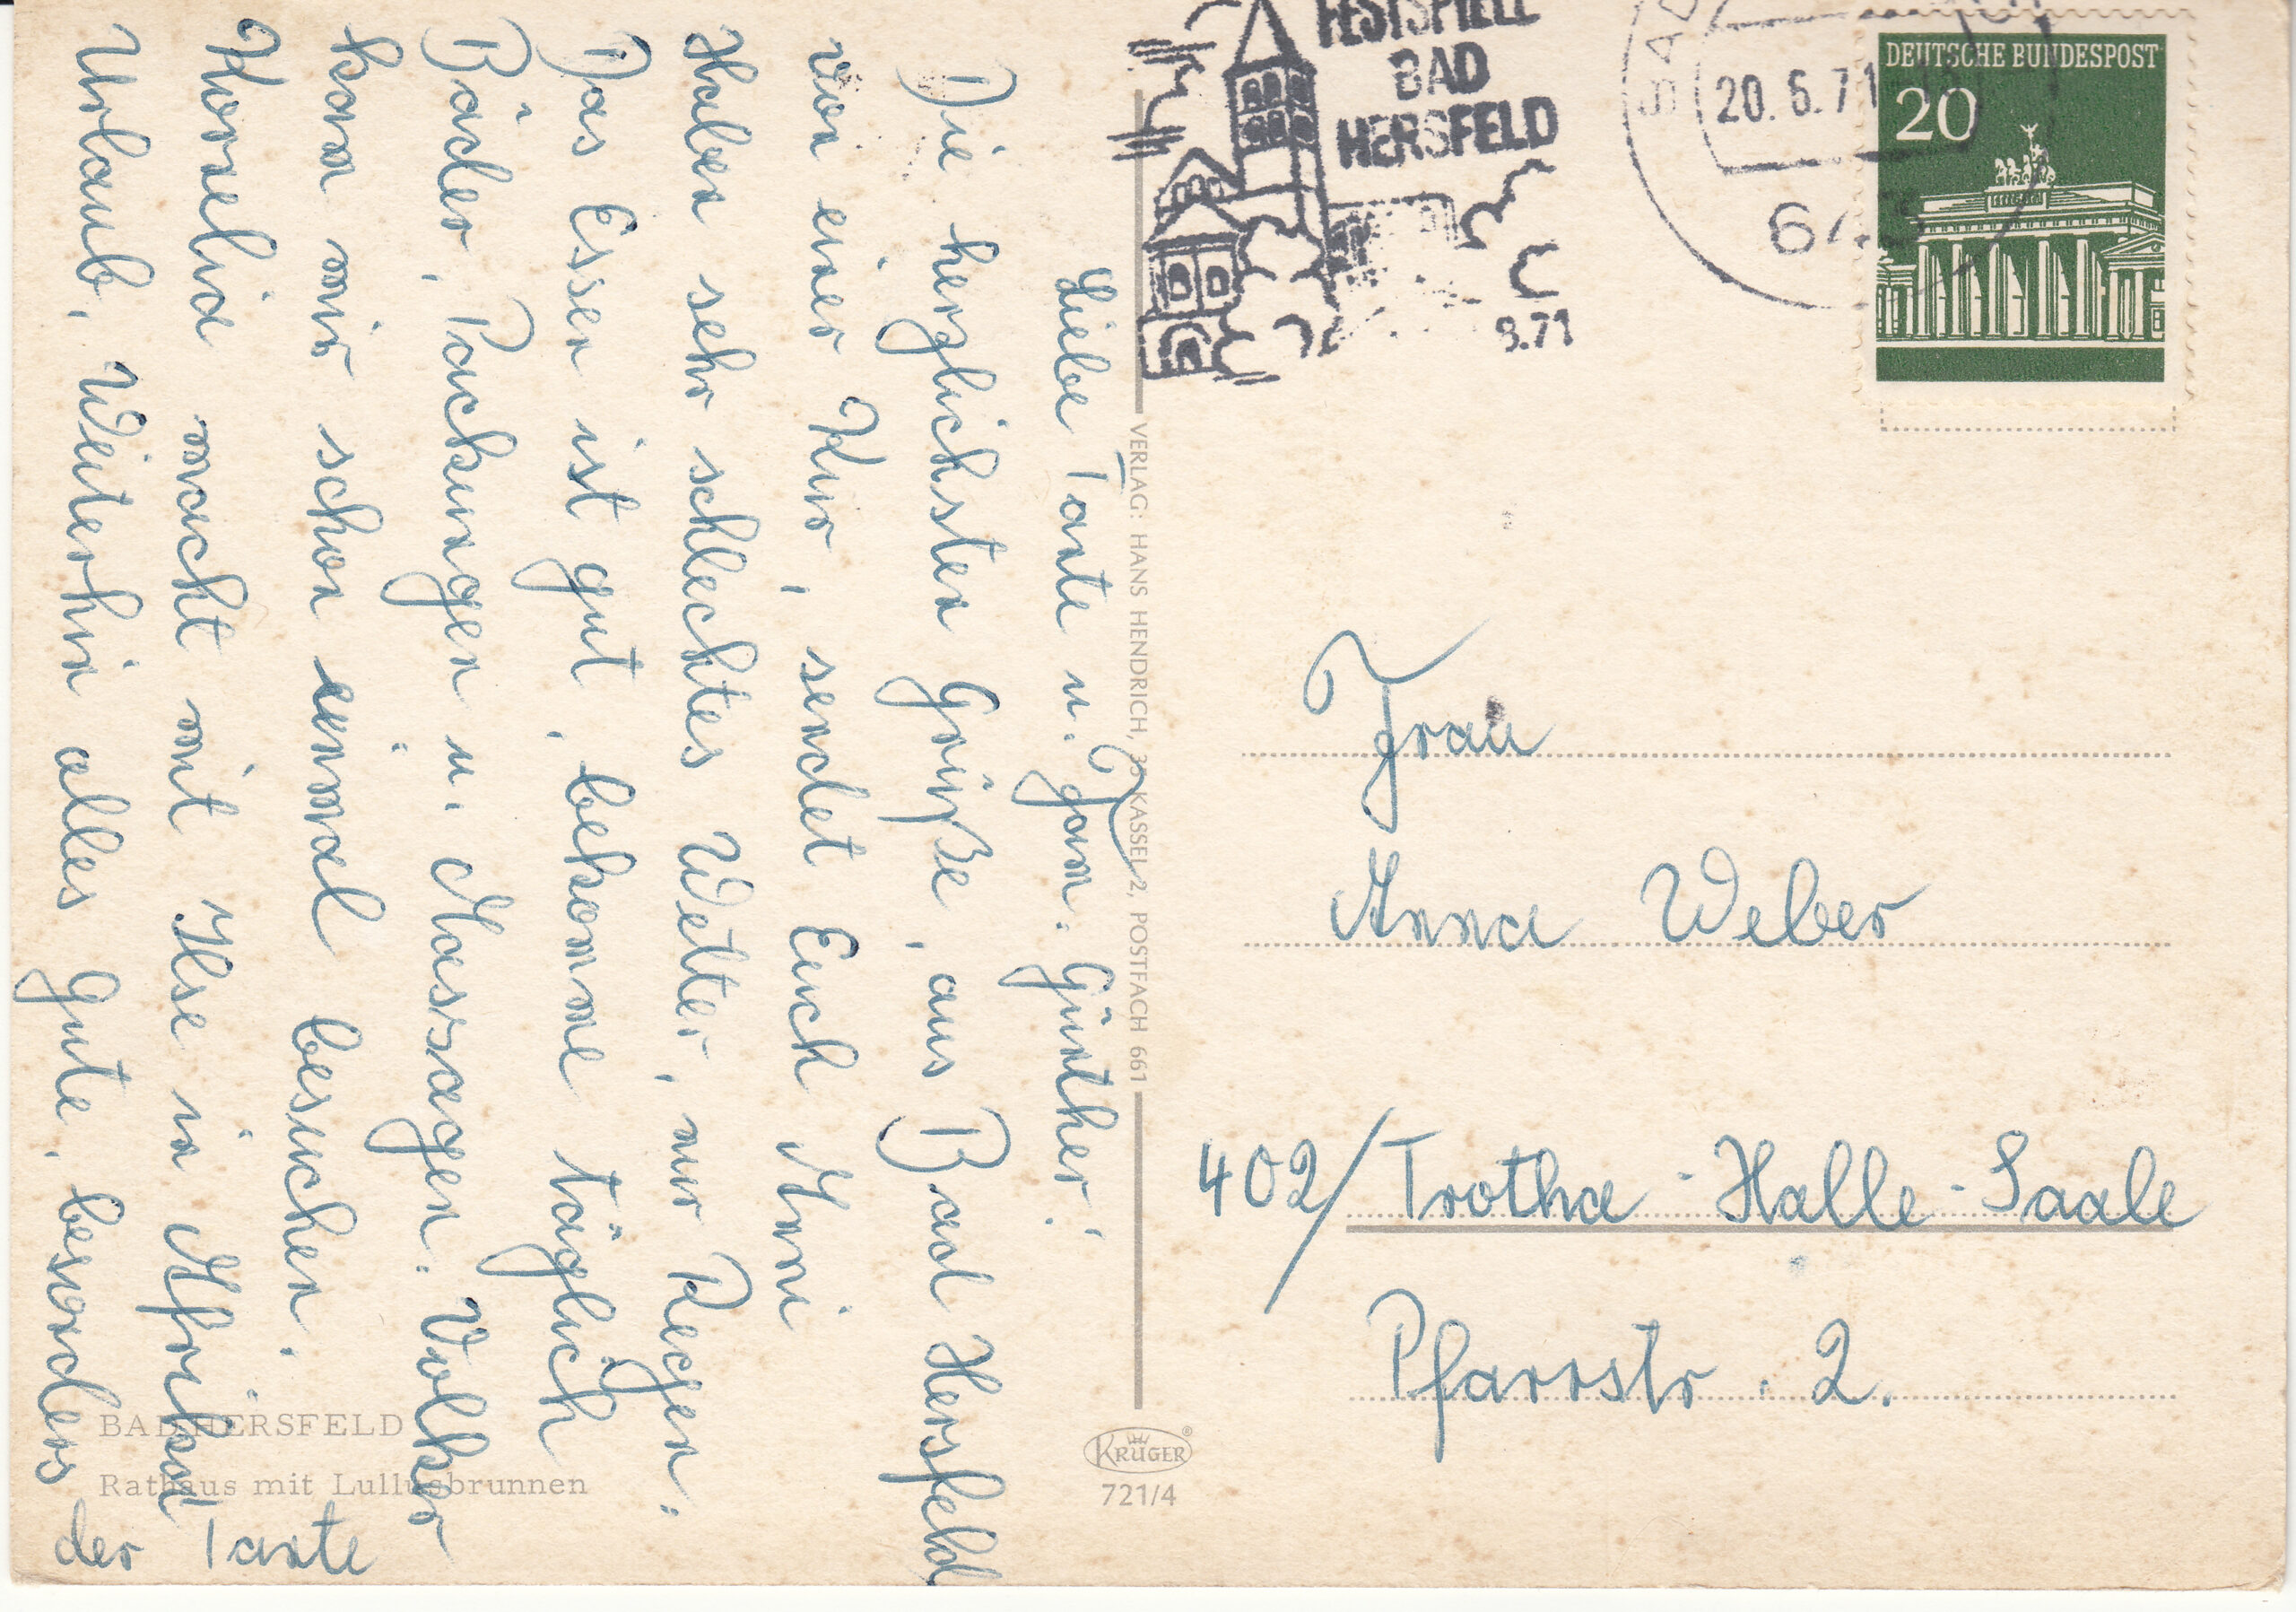 Liebe Tante u. Fam. Günther!
Die herzlichsten Grüße, aus Bad Hersfeld
von einer Kur, sendet Euch Anni
Haben sehr schlechtes Wetter, nur Regen.
Das Essen ist gut, bekomme täglich
Bäder, Packungen u. Massagen. Volker
kam mir schon einmal besuchen.
Kornelia macht mit Ilse in Afrika
Urlaub. Weiterhin alles Gute, besonders
der Tante
BAD HERSFELD
Rathaus mit Lullusbrunnen
VERLAG: HANS HENDRICH, 35 KASSEL 2, POSTFACH 661
KRÜGER
721/4
FESTSPIELE
BAD
HERSFELD
8.71
BAD
20.6.71
643
DEUTSCHE BUNDESPOST
20
Frau
Anna Weber
402/Trotha-Halle-Saale
Pfarrstr. 2.